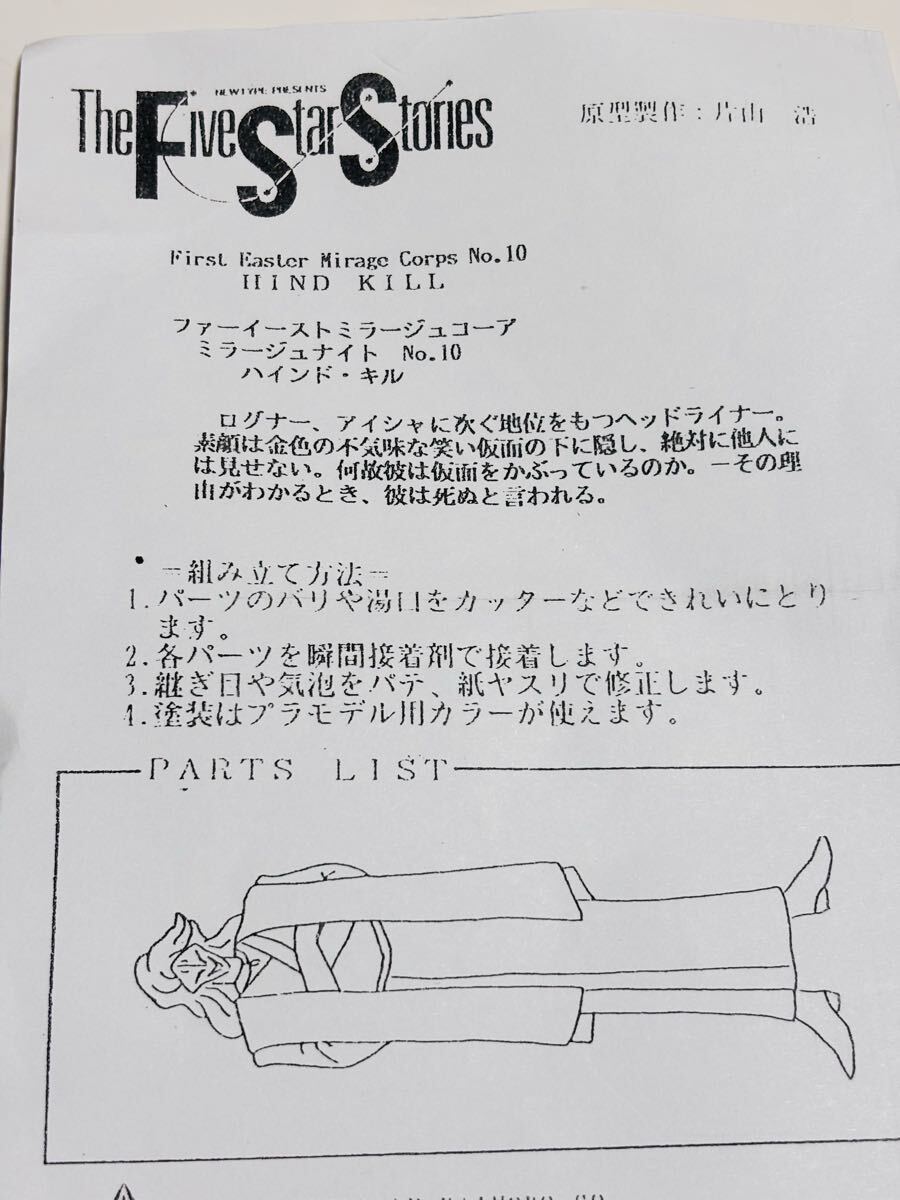 NEWTYPE PRESENTS
The Five Star Stories
原型製作：片山 浩
First Easter Mirage Corps No.10
HIND KILL
ファーイーストミラージュコーア
ミラージュナイト No.10
ハインド・キル
ログナー、アイシャに次ぐ地位をもつヘッドライナー。
素顔は金色の不気味な笑い仮面の下に隠し、絶対に他人に
は見せない。何故彼は仮面をかぶっているのか。－その理
由がわかるとき、彼は死ぬと言われる。
＝組み立て方法＝
1.パーツのバリや湯口をカッターなどできれいにとり
ます。
2.各パーツを瞬間接着剤で接着します。
3.継ぎ目や気泡をパテ、紙ヤスリで修正します。
4.塗装はプラモデル用カラーが使えます。
PARTS LIST